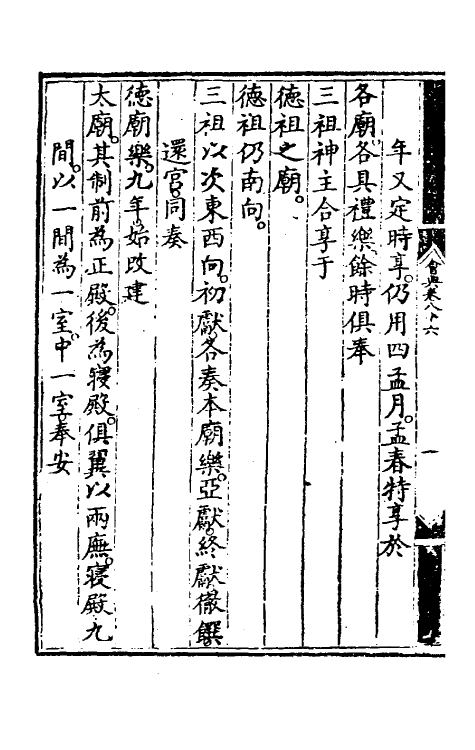 會典卷八十六
一
年又定時享。仍用四孟月。孟春特享於
各廟。各具禮樂。餘時俱奉
三祖神主合享于
德祖之廟。
德祖仍南向。
三祖以次東西向。初獻各奏本廟樂。亞獻。終獻徹饌。
還宮。同奏
德廟樂。九年。始改建
太廟。其制前為正殿。後為寢殿。俱翼以兩廡。寢殿九
間。以一間為一室。中一室奉安